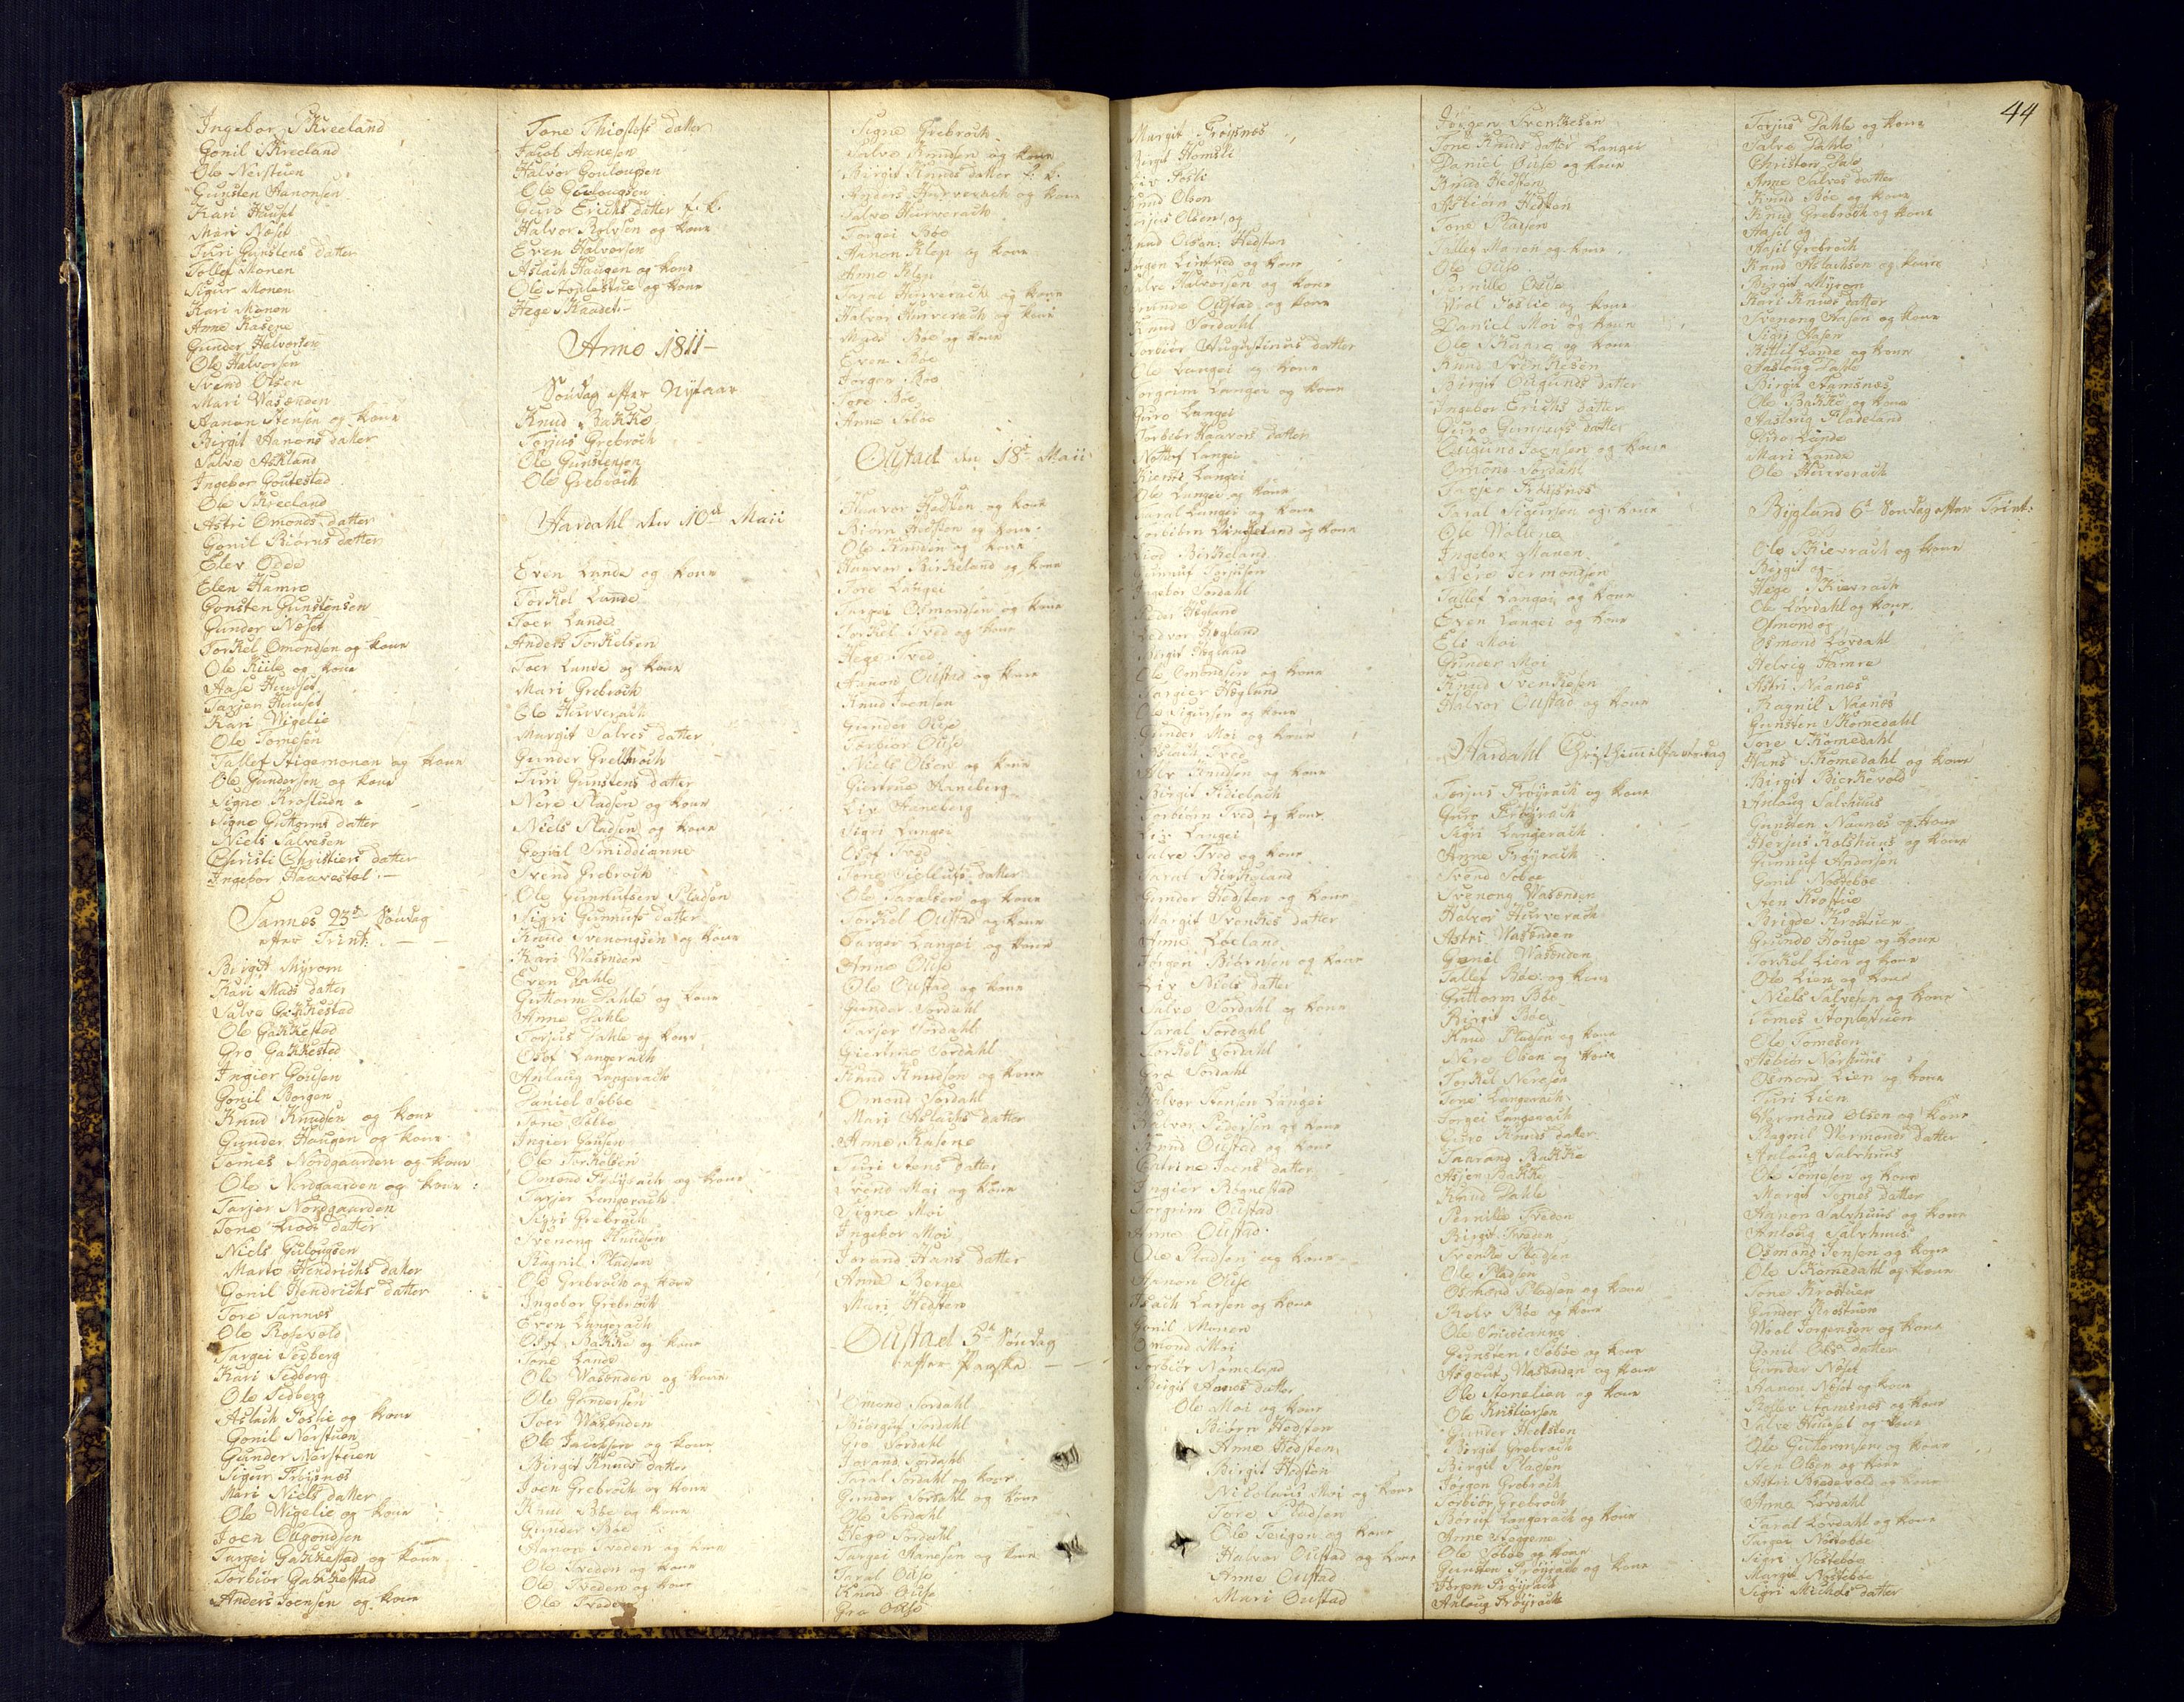 Ingebor Skreeland
Gonil Skreeland
Ole Neistuen
Gunsten Hanonsen
Kari Huuset
Mari Næset
Turi Gunstens datter
Tollef Monen
Sigur Monen
Kari Monen
Anne Kasene
Gunder Halvorsen
Ole Halvorsen
Svend Olsen
Mari Wasenden
Aanon Stensen og kone
Birgit Aanons datter
Salve Askland
Ingebor Goutestad
Ole Skreeland
Astri Omonds datter
Gonil Biørns datter
Elev Odde
Elen Hamre
Gonsten Gunstensen
Gunder Næset
Torkel Omondsen og kone
Ole Kiile og kone
Aase Huuset
Tarjer Huuset
Kari Wigelie
Ole Tomesen
Tallef Stigemonen og kone
Ole Gundersen og kone
Signe Krostuen
Signe Guttorms datter
Niels Salvesen
Christi Christiers datter
Ingebor Haavestøl
Sannes 23de Søndag
efter Trint:
Birgit Myrom
Kari Mads datter
Salve Gakkestad
Ole Gakkestad
Gro Gakkestad
Ingier Gousen
Gonil Borgen
Knud Knudsen og kone
Gunder Haugen og kone
Tomes Nordgaarden og kone
Ole Nordgaarden og kone
Tarjer Nordgaarden
Tone Liods datter
Niels Gulougsen
Marte Hendrichs datter
Gonil Hendrichs datter
Tore Sannes
Ole Rosevold
Targei Sedberg
Kari Sedberg
Ole Sedberg
Aslach Foslie og kone
Gonil Nerstuen
Gunder Nerstuen
Sigur Frøysnæs
Mari Niels datter
Ole Wigelie og kone
Joen Ougondsen
Targei Gakkestad og kone
Torbiør Gakkestad
Anders Joensen og kone
Tone Thiostofs datter
Jacob Aanesen
Halvor Goulougsen
Ole Goulougsen
Guro Erichs datter f. k.
Halvor Rolvsen og kone
Even Halvorsen
Aslach Haugen og kone
Ole Stoplestue og kone
Hege Skaaset
Anno 1811
Søndag efter Nytaar
Knud Bakke
Torjus Grebroch
Ole Gunstensen
Ole Grebroch
Aardahl den 10de Maii
Even Lande og kone
Torkel Lande
Toer Lande
Anders Torkelsen
Toer Lunde og kone
Mari Grebroch
Ole Hurverach
Margit Salves datter
Gunder Grebroch
Turi Gunstens datter
Nere Pladsen og kone
Niels Pladsen og kone
Gonil Smiddianne
Svend Grebroch
Ole Gunnufsen Pladsen
Sigri Gunnufs datter
Knud Svenongsen og kone
Kari Wasenden
Even Dahle
Guttorm Dahle og kone
Anne Dahle
Torjus Dahle og kone
Olof Langerach
Anlaug Langerach
Daniel Søbøe
Tone Søbøe
Ingier Gousen
Ole Torkelsen
Omond Frøyrach og kone
Tarjer Langerach
Sigri Grebroch
Svenong Knudsen
Ragnil Pladsen
Ole Grebroch og kone
Ingebor Grebroch
Even Langerach
Olof Bakke og kone
Tone Lande
Ole Wasenden og kone
Ole Gundersen
Toer Wasenden
Ole Jacobsen og kone
Birgit Knuds datter
Joen Grebroch og kone
Knud Bøe og kone
Gunder Bøe
Aanon Tveden og kone
Ole Tveden og kone
Ole Tveden og kone
Ole Tveden
Signe Grebroch
Salve Knudsen og kone
Birgit Knuds datter f. k.
Anders Hurverach og kone
Salve Hurverach
Torgei Bøe
Aanon Klep og kone
Anne Klep
Tarjei Hurverach og kone
Halvor Hurverach og kone
Mads Bøe og kone
Even Bøe
Jørgen Bøe
Tore Bøe
Anne Søbøe
Oustad den 18de Maii
Haavor Hedsten og kone
Biørn Hedsten og kone
Ole Knudsen og kone
Haavor Birkeland og kone
Tore Langei
Targei Osmondsen og kone
Torkel Tved og kone
Hege Tved
Aanon Oustad og kone
Knud Joensen
Gunder Ouse
Torbiør Ouse
Niels Olsen og kone
Giertrue Haneberg
Liv Haneberg
Sigri Langei
Olof Tved
Tone Siellufs datter
Ole Taralsen og kone
Torkel Oustad og kone
Targer Langei og kone
Anne Ouse
Ole Oustad og kone
Gunder Sordahl
Tarjer Sordahl
Giertrue Sordahl
Knud Knudsen og kone
Omond Sordahl
Mari Aslachs datter
Anne Kasene
Turi Stens datter
Svend Moi og kone
Signe Moi
Ingebor Moi
Jorand Hans datter
Anne Berge
Mari Hedsten
Oustad 3de Søndag
efter Paaske
Omond Sordahl
Biørguf Sordahl
Gro Sordahl
Jorand Sordahl
Taral Sordahl og kone
Gunder Sordahl og kone
Ole Sordahl
Hege Sordahl
Targei Aanesen og kone
Taral Ouse
Knud Ouse
Gro Ouse
44
Margit Frøysnæs
Birgit Homsli
Liv Fosli
Knud Olsen
Torjus Olsen og
Knud Olsen Hedsten
Jørgen Lindtved og kone
Salve Halvorsen og kone
Grunde Oustad og kone
Knud Sordahl
Torbiør Augustinus datter
Ole Langei og kone
Torgrim Langei og kone
Guro Langei
Torbiør Haavors datter
Nottof Langei
Kiersti Langei
Ole Langei og kone
Taral Langei og kone
Torbiørn Birkeland og kone
Liod Birkeland
Gunnuf Torjusen
Ingebor Sordahl
Peder Hægland
Ledvor Hægland
Birgit Hægland
Ole Omondsen og kone
Targier Hægland
Ole Sigursen og kone
Gunder Moi og kone
Aslach Tved
Alv Knudsen og kone
Birgit Fidielach
Torbiørn Tved og kone
Liv Langei
Salve Tved og kone
Taral Birkeland
Gunder Hedsten og kone
Margit Svenkes datter
Anne Løeland
Jørgen Biørnsen og kone
Liv Niels datter
Salve Sordahl og kone
Taral Sordahl
Torkel Sordahl
Gro Sordahl
Halvor Stensen Langei
Halvor Pedersen og kone
Knud Oustad og kone
Catrine Joens datter
Ingier Røgnestad
Torgrim Oustad
Anne Oustad
Ole Pladsen og kone
Aanon Ouse
Isach Larsen og kone
Gonil Monen
Omond Moi
Torbiør Nomeland
Birgit Aanes datter
Ole Moi og kone
Biørn Hedsten
Anne Hedsten
Birgit Hedsten
Nicolaus Moi og kone
Tore Pladsen
Ole Terigen og kone
Halvor Oustad og kone
Anne Oustad
Mari Oustad
Jørgen Svenkesen
Tone Knuds datter Langei
Daniel Ouse og kone
Knud Hedsten
Asbiørn Hedsten
Tone Pladsen
Tallef Monen og kone
Ole Ouse
Pernille Ouse
Woel Foslie og kone
Daniel Moi og kone
Ole Skaare og kone
Knud Svenkesen
Birgit Ougunds datter
Ingebor Erichs datter
Guro Gunnars datter
Ougund Joensen og kone
Omond Sordahl
Tarjer Frøysnæs
Taral Sigursen og kone
Ole Wolene
Ingebor Monen
Nere Jermondsen
Tallef Langei og kone
Even Langei og kone
Eli Moi
Gunder Moi
Knud Svenkesen
Halvor Oustad og kone
Aardahl Christhimmelfartsdag
Torjus Frøyrach og kone
Guro Frøyrach
Sigri Langerach
Anne Frøyrach
Svend Søbøe
Svenong Wasenden
Halvor Hurverach
Astri Wasenden
Gonil Wasenden
Tallef Bøe og kone
Guttorm Bøe
Birgit Bøe
Knud Pladsen og kone
Nere Olsen og kone
Torkel Neresen
Tone Langerach
Torgei Langerach
Guro Knuds datter
Taarand Bakke
Asjer Bakke
Knud Dahle
Pernille Tveden
Birgit Tveden
Svenke Pladsen
Ole Pladsen
Osmond Pladsen og kone
Rolv Bøe og kone
Ole Smidianne
Gunsten Søbøe og kone
Asgout Wasenden og kone
Ole Stenelien og kone
Ole Kristiersen
Gunder Hedsten
Birgit Grebroch
Birgit Pladsen
Jørgen Grebroch
Torbiør Grebroch
Børuf Langerach og kone
Anne Stoggene
Ole Søbøe og kone
Gunsten Frøyrach og kone
Jørgen Frøyrach
Anlaug Frøyrach
Torjus Dahle og kone
Salve Dahle
Christen Dale
Anne Salves datter
Knud Bøe og kone
Knud Grebroch og kone
Aasil og
Aasil Grebroch
Knud Aslachsen og kone
Birgit Myrom
Kari Knuds datter
Svenong Aasen og kone
Sigri Aasen
Kittil Lande og kone
Aaslaug Dahle
Birgit Stamsnæs
Ole Bakke og kone
Aaslaug Fladeland
Guro Lande
Mari Lande
Ole Hurverach
Bygland 6te Søndag efter Trint:
Ole Kievrach og kone
Birgit og
Hege Kievrach
Ole Lørdahl og kone
Osmond og
Osmond Lørdahl
Helvig Hamre
Astri Naanes
Ragnil Naanes
Gunsten Skomedahl
Tore Skomedahl
Hans Skomedahl og kone
Birgit Bierkevold
Anlaug Salvhuus
Gunsten Naanes og kone
Herjus Kalshuus og kone
Gunnuf Andersen
Gonil Nostebøe
Sten Krostue
Brigde Krostuen
Grunde Houge og kone
Torkel Lien og kone
Ole Lien og kone
Niels Salvesen og kone
Tomes Stoplestuen
Ole Tomesen
Asbiør Norhuus
Osmond Lien og kone
Turi Lien
Wermond Olsen og kone
Ragnil Wermonds datter
Anlaug Salvhuus
Ole Tomesen og kone
Margit Tomes datter
Aanon Salvhuus og kone
Anlaug Salvhuus
Osmond Jensen og kone
Ole Skomedahl og kone
Tone Krostuen
Gunder Krostuen
Woel Jorgensen og kone
Gonil Ols datter
Gunder Næset
Aanon Næset og kone
Rolev Stamsnæs og kone
Salve Huuset og kone
Ole Guttormsen og kone
Sten Olsen og kone
Astri Bradevold og kone
Anne Lørdahl
Taral Lørdahl og kone
Targei Nostebøe
Sigri Nostebøe
Margit Nostebøe
Sigri Michels datter